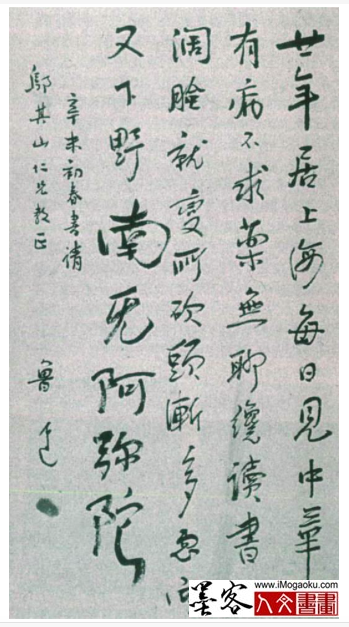 廿年居上海每日見中華
有病不求藥無聊纔讀書
闊臉就變所砍頭漸多忽而
又下野南无阿弥陀
辛未初春書請
鄔其山仁兄教正
魯迅
墨客
www.iMogaoku.com
人文書畫